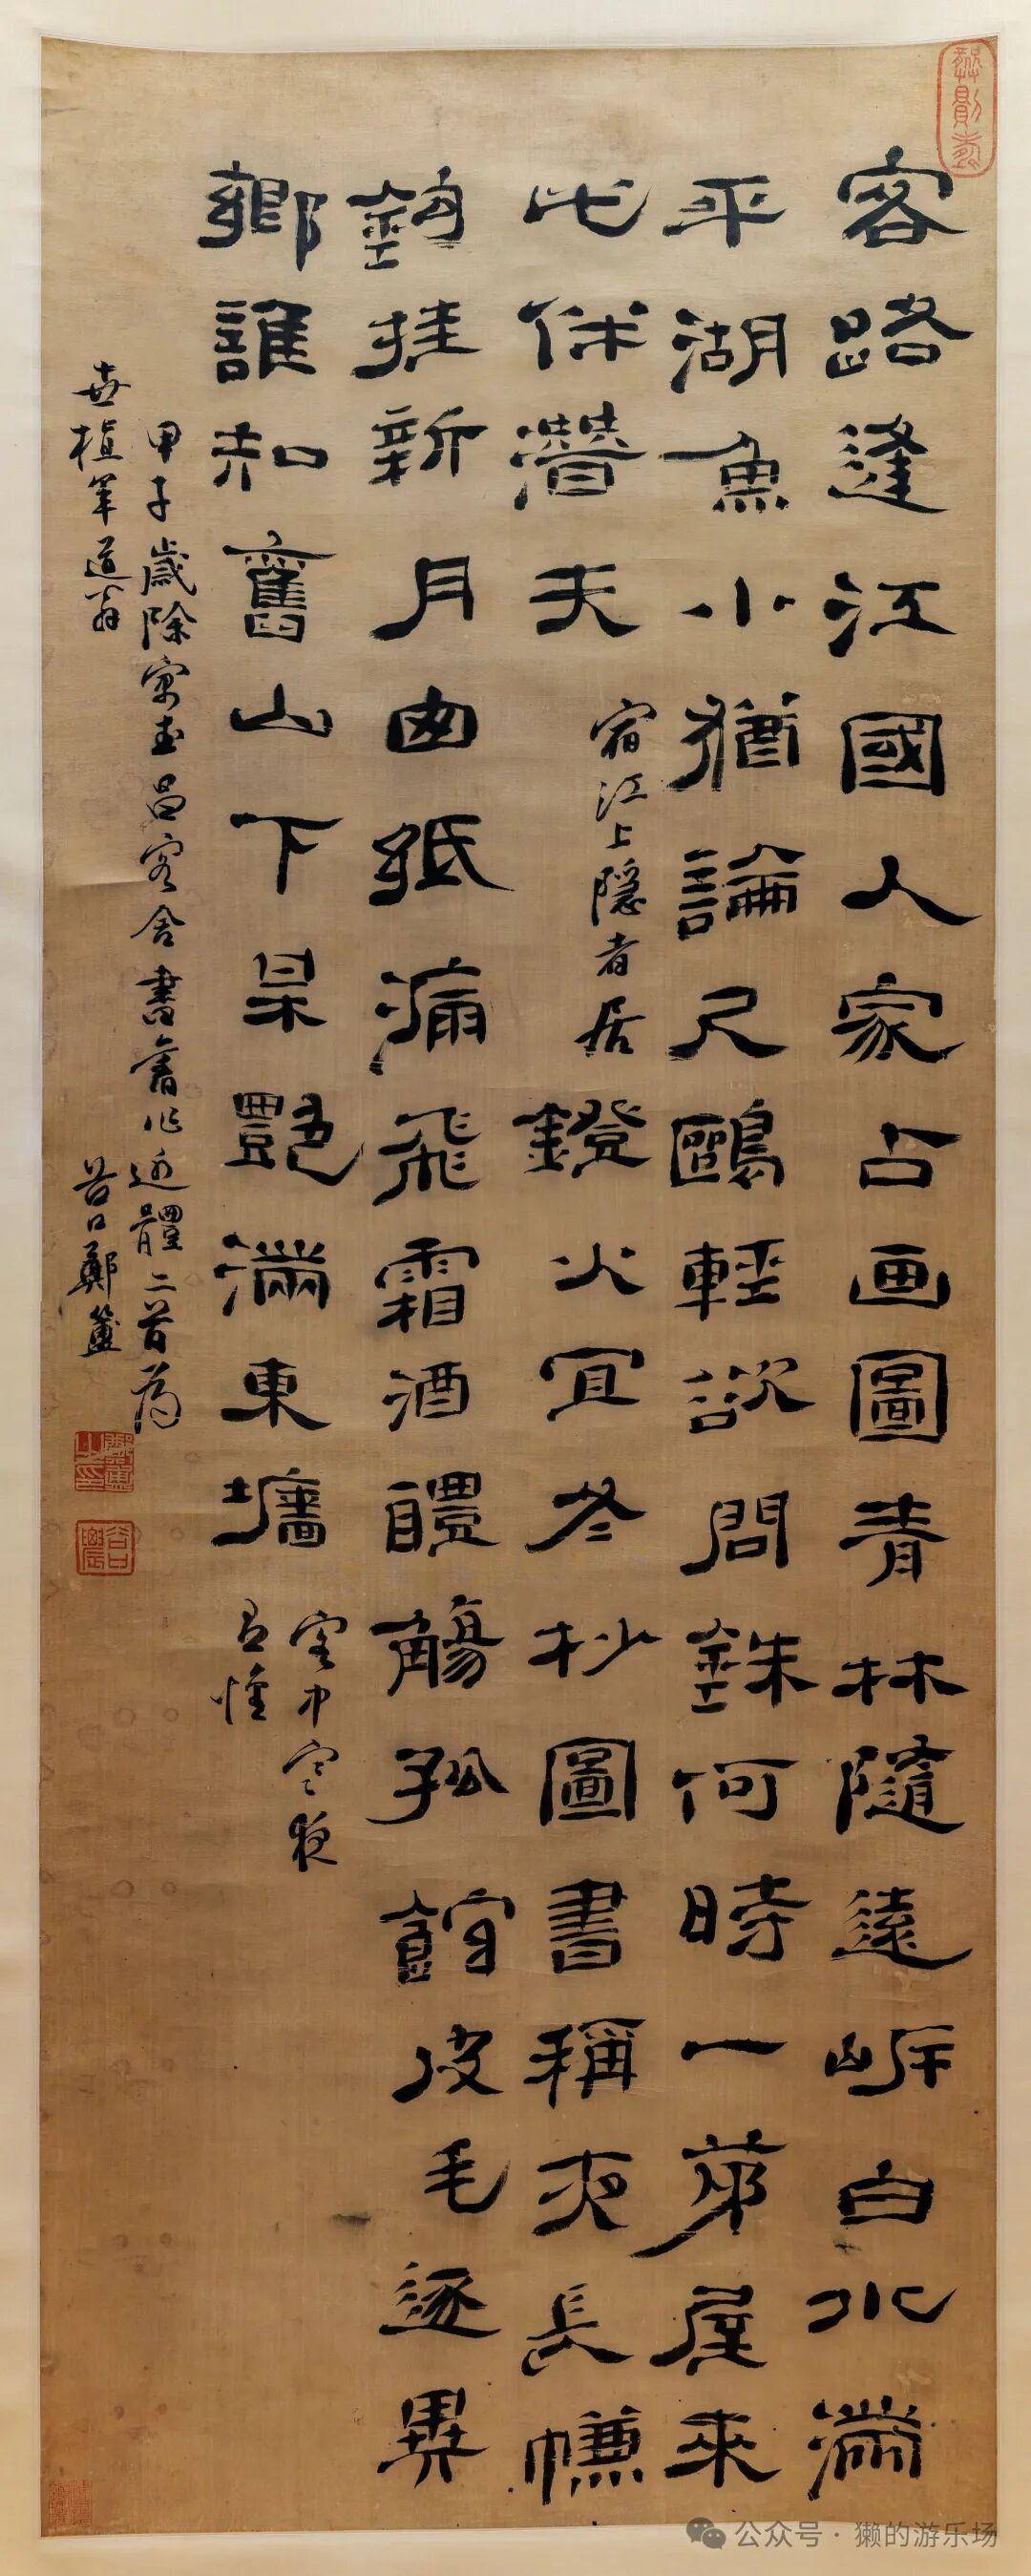 客路逢江國人家占画圖青林隨遠岍白水滿
平湖魚小猶論尺鷗輕欲問銖何時一茅屋來
此休潛夫
宿江上隱者居
鐙火宜冬杪圖書稱夜長㡘
鉤挂新月囪紙漏飛霜酒醴觴孤館皮毛逐異
鄉誰知舊山下杲艷滿東墻
客中寒夜
有懷
甲子歲除寓昌客舍書舊作近體二首為
世植年道翁
谷口鄭簠
鄭簠之印
谷口農
公众号·獭的游乐场